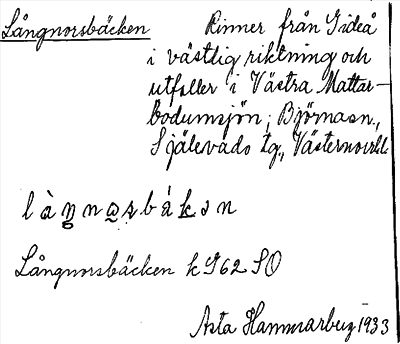 Långnorsbäcken Rinner från Gideå
i västlig riktning och
utfaller i Västra Mattar-
bodumsjön; Björnasn.,
Själevads tg., Västernorrl.
Långnorsbäcken k 962 SO
Asta Hammarberg 1933